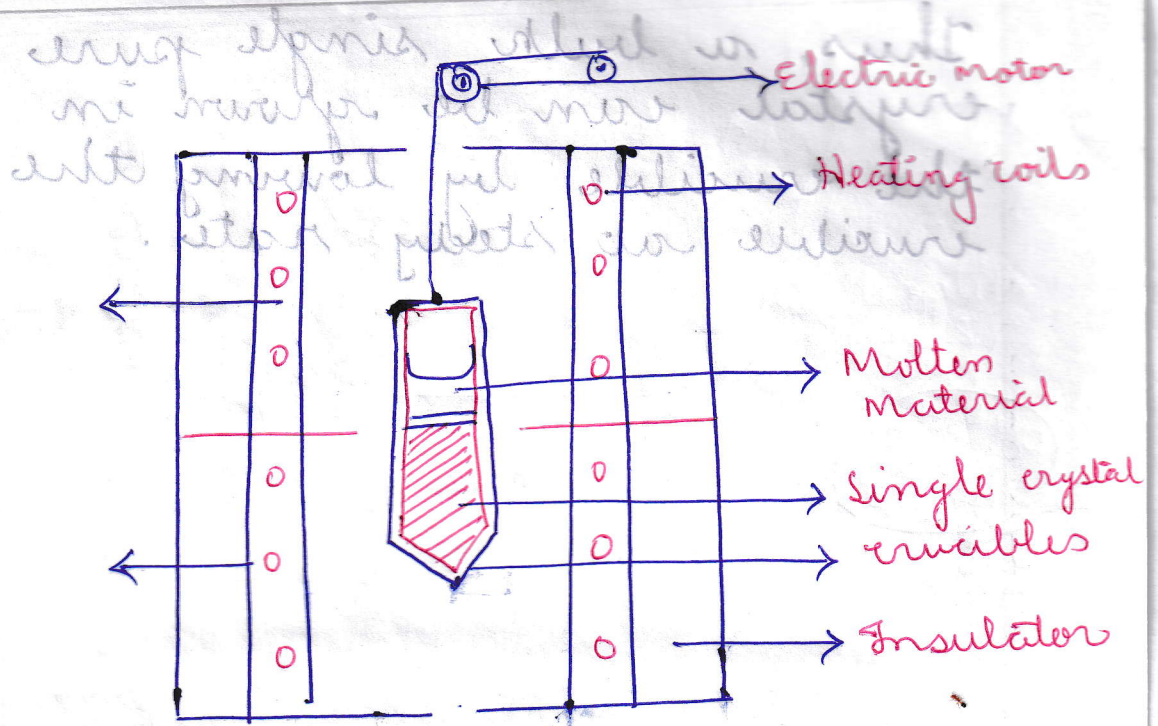 Electric motor
Heating coils
Molten
Material
Single crystal
crucibles
Insulator